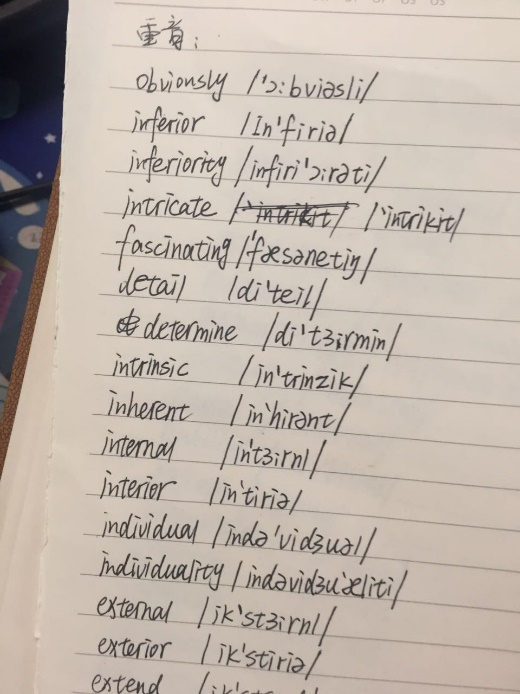 重音:
obviously /'ɔ:bviəsli/
inferior /In'firiə/
inferiority /infiri'ɔ:rəti/
intricate /'intrikit/ /'intrikit/
fascinating /'fæsənetiŋ/
detail /di'teil/
determine /di't3:rmin/
intrinsic /in'trinzik/
inherent /in'hirənt/
internal /in't3:rnl/
interior /in'tiriə/
individual /ində'vidʒuəl/
individuality /indəvidʒu'æliti/
external /ik'st3:rnl/
exterior /ik'stiriə/
extend